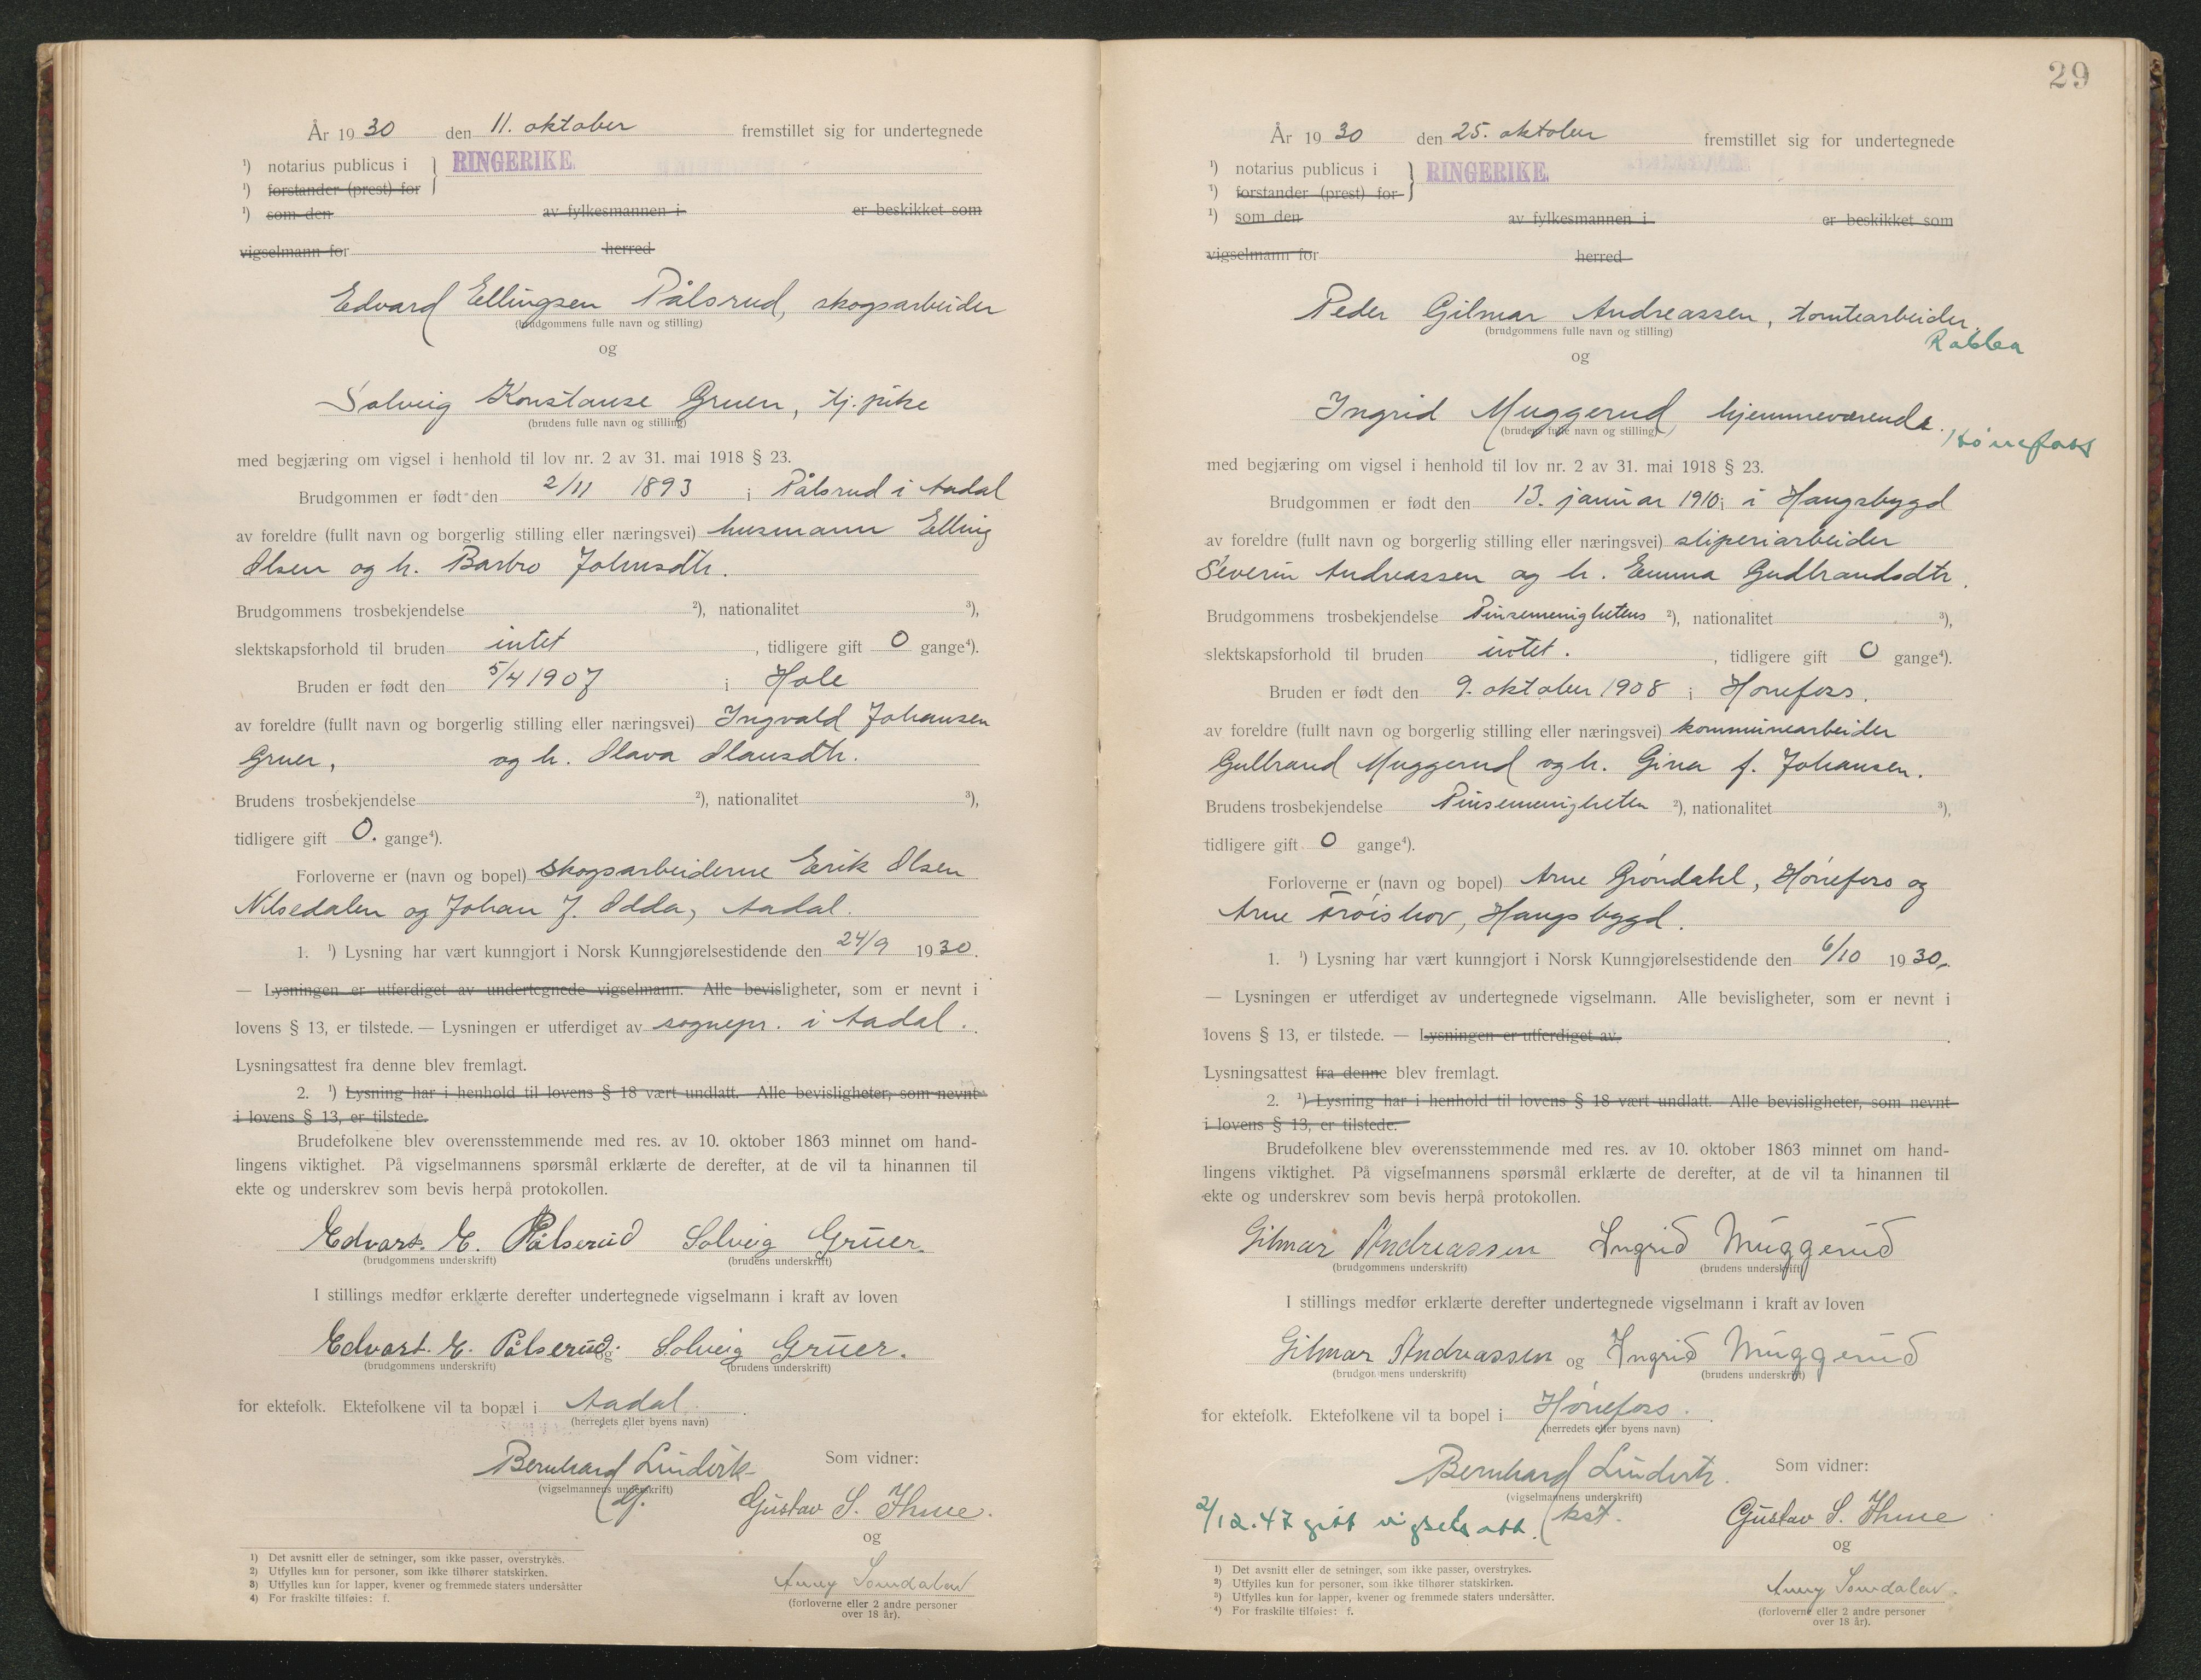 År 1930 den 11. oktober fremstillet sig for undertegnede
¹) notarius publicus i } RINGERIKE.
¹) forstander (prest) for
¹) som den av fylkesmannen i er beskikket som
vigselmann for herred
Edvard Ellingsen Pålsrud, skogsarbeider
(brudgommens fulle navn og stilling)
og
Solveig Konstanse Gruer, tj. pike
(brudens fulle navn og stilling)
med begjæring om vigsel i henhold til lov nr. 2 av 31. mai 1918 § 23.
Brudgommen er født den 2/11 1893 i Pålsrud i Aadal
av foreldre (fullt navn og borgerlig stilling eller næringsvei) husmann Elling
Olsen og h. Barbro Johnsdtr.
Brudgommens trosbekjendelse ²), nationalitet ³),
slektskapsforhold til bruden intet, tidligere gift 0 gange⁴).
Bruden er født den 5/4 1907 i Hole
av foreldre (fullt navn og borgerlig stilling eller næringsvei) Ingvald Johansen
Gruer, og h. Olava Olausdtr.
Brudens trosbekjendelse ²), nationalitet ³),
tidligere gift 0. gange⁴).
Forloverne er (navn og bopel) skogsarbeiderne Erik Olsen
Nilsedalen og Johan J. Odda, Aadal.
1. ¹) Lysning har vært kunngjort i Norsk Kunngjørelsestidende den 24/9 1930.
— Lysningen er utferdiget av undertegnede vigselmann. Alle bevisligheter, som er nevnt i
lovens § 13, er tilstede. — Lysningen er utferdiget av sognepr. i Aadal.
Lysningsattest fra denne blev fremlagt.
2. ¹) Lysning har i henhold til lovens § 18 vært undlatt. Alle bevisligheter, som nevnt
i lovens § 13, er tilstede.
Brudefolkene blev overensstemmende med res. av 10. oktober 1863 minnet om hand-
lingens viktighet. På vigselmannens spørsmål erklærte de derefter, at de vil ta hinannen til
ekte og underskrev som bevis herpå protokollen.
Edvart. E. Pålserud Solveig Gruer.
(brudgommens underskrift) (brudens underskrift)
I stillings medfør erklærte derefter undertegnede vigselmann i kraft av loven
Edvart. E. Pålserud. og Solveig Gruer.
(brudgommens underskrift) (brudens underskrift)
for ektefolk. Ektefolkene vil ta bopæl i Aadal.
(herredets eller byens navn)
Bernhard Lindvik Som vidner:
(vigselmannens underskrift)
Gustav S. Ihme.
og
Anny Somdalen
(forloverne eller 2 andre personer
over 18 år).
1) Det avsnitt eller de setninger, som ikke passer, overstrykes.
2) Utfylles kun for personer, som ikke tilhører statskirken.
3) Utfylles kun for lapper, kvener og fremmede staters undersåtter
4) For fraskilte tilføies: f.
29
År 1930 den 25. oktober fremstillet sig for undertegnede
¹) notarius publicus i } RINGERIKE.
¹) forstander (prest) for
¹) som den av fylkesmannen i er beskikket som
vigselmann for herred
Peder Gilmar Andreassen, tomtearbeider,
(brudgommens fulle navn og stilling)
og
Ingrid Muggerud, hjemmeværende.
(brudens fulle navn og stilling)
Hønefoss
med begjæring om vigsel i henhold til lov nr. 2 av 31. mai 1918 § 23.
Brudgommen er født den 13. januar 1910 i i Haugsbygd
av foreldre (fullt navn og borgerlig stilling eller næringsvei) sliperiarbeider
Severin Andreassen og h. Emma Gudbrandsdtr.
Brudgommens trosbekjendelse Pinsemenighetens ²), nationalitet ³),
slektskapsforhold til bruden intet., tidligere gift 0 gange⁴).
Bruden er født den 9. oktober 1908 i Hønefoss.
av foreldre (fullt navn og borgerlig stilling eller næringsvei) kommunearbeider
Gulbrand Muggerud og h. Gina f. Johansen.
Brudens trosbekjendelse Pinsemenigheten ²), nationalitet ³),
tidligere gift 0 gange⁴).
Forloverne er (navn og bopel) Arne Grøndahl, Hønefoss og
Arne Frøishov, Haugsbygd.
1. ¹) Lysning har vært kunngjort i Norsk Kunngjørelsestidende den 6/10 1930.
— Lysningen er utferdiget av undertegnede vigselmann. Alle bevisligheter, som er nevnt i
lovens § 13, er tilstede. — Lysningen er utferdiget av.
Lysningsattest fra denne blev fremlagt.
2. ¹) Lysning har i henhold til lovens § 18 vært undlatt. Alle bevisligheter, som nevnt
i lovens § 13, er tilstede.
Brudefolkene blev overensstemmende med res. av 10. oktober 1863 minnet om hand-
lingens viktighet. På vigselmannens spørsmål erklærte de derefter, at de vil ta hinannen til
ekte og underskrev som bevis herpå protokollen.
Gilmar Andreassen Ingrid Muggerud
(brudgommens underskrift) (brudens underskrift)
I stillings medfør erklærte derefter undertegnede vigselmann i kraft av loven
Gilmar Andreassen og Ingrid Muggerud
(brudgommens underskrift) (brudens underskrift)
for ektefolk. Ektefolkene vil ta bopel i Hønefoss.
(herredets eller byens navn)
Bernhard Lindvik. Som vidner:
(vigselmannens underskrift)
2/12.47 gitt vigsels att. kst. Gustav S. Ihme
og
Anny Somdalen.
(forloverne eller 2 andre personer
over 18 år).
¹) Det avsnitt eller de setninger, som ikke passer, overstrykes.
²) Utfylles kun for personer, som ikke tilhører statskirken.
³) Utfylles kun for lapper, kvener og fremmede staters undersåtter.
⁴) For fraskilte tilføies: f.